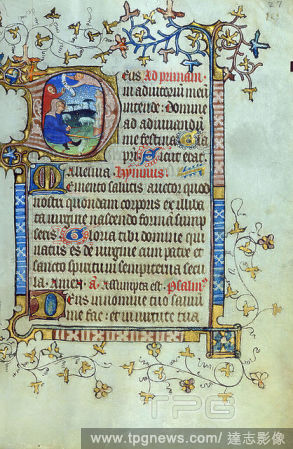 eus Ad primam
in adiutorium meu
intende : domine
ad adiuuandu
me festina Gla
pri Sicut erat
Alleluia Hympnus
Memento salutis auctor quod
nostri quondam corporis ex illiba
ta uirgine nascendo formam sump
seris Gloria tibi domine qui
natus es de uirgine cum patre et
sancto spiritu in sempiterna secu
la. Amen. a. Assumpta est. Psalm
Deus in nomine tuo saluu
me fac : et in uirtute tua
TPG
www.tpgnews.com / 達志影像